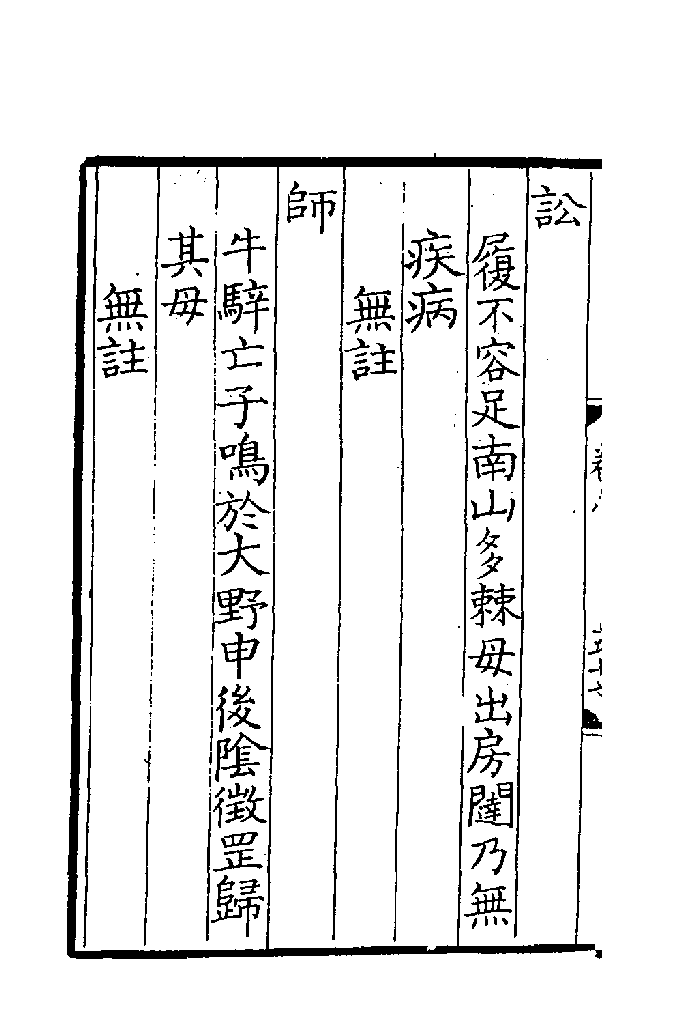 訟
履不容足南山多棘毋出房闥乃無
疾病
無註
師
牛騂亡子鳴於大野申後陰徴罡歸
其毋
無註